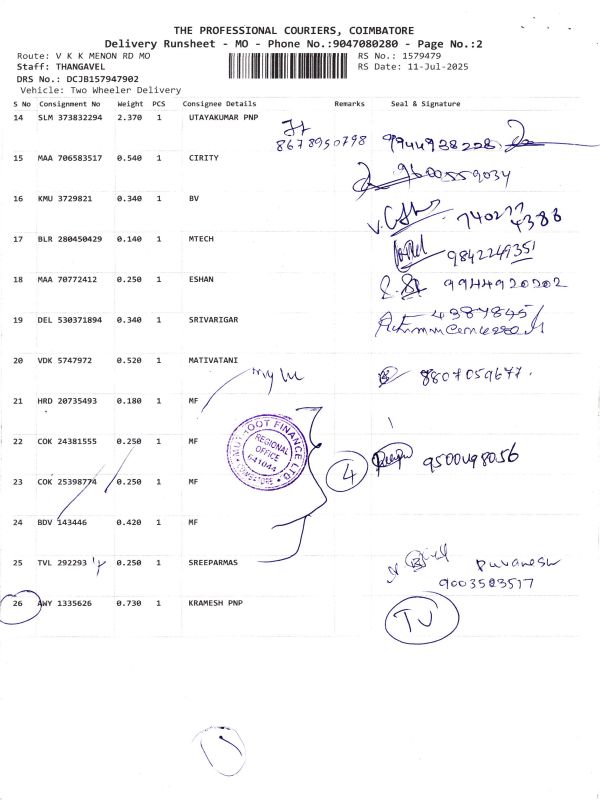 THE PROFESSIONAL COURIERS, COIMBATORE
Delivery Runsheet - MO - Phone No.:9047080280 - Page No.:2
Route: V K K MENON RD MO RS No.: 1579479
Staff: THANGAVEL RS Date: 11-Jul-2025
DRS No.: DCJB157947902
Vehicle: Two Wheeler Delivery
S No Consignment No Weight PCS Consignee Details Remarks Seal & Signature
14 SLM 373832294 2.370 1 UTAYAKUMAR PNP
8678950798 9944938228
15 MAA 706583517 0.540 1 CIRITY
9600559034
16 KMU 3729821 0.340 1 BV
740277
4388
17 BLR 280450429 0.140 1 MTECH
9842249351
18 MAA 70772412 0.250 1 ESHAN
9944920202
19 DEL 530371894 0.340 1 SRIVARIGAR
4387845
20 VDK 5747972 0.520 1 MATIVATANI
8807059677
21 HRD 20735493 0.180 1 MF
22 COK 24381555 0.250 1 MF
MUTHOOT FINANCE LTD
REGIONAL
OFFICE
641044
COIMBATORE
4
9500498056
23 COK 25398774 0.250 1 MF
24 BDV 143446 0.420 1 MF
25 TVL 292293 0.250 1 SREEPARMAS
Puvanesh
9003583517
26 AWY 1335626 0.730 1 KRAMESH PNP
TV